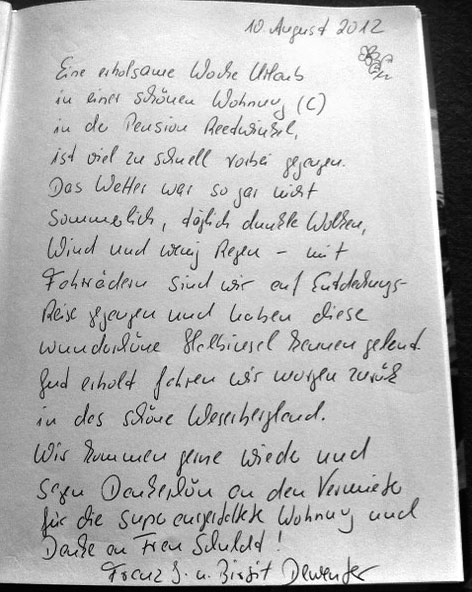 10. August 2012
Eine erholsame Woche Urlaub
in einer schönen Wohnung (C)
in der Pension Reedwinkel,
ist viel zu schnell vorbei gegangen.
Das Wetter war so gar nicht
Sommerlich, täglich dunkle Wolken,
Wind und wenig Regen – mit
Fahrrädern sind wir auf Entdeckungs-
Reise gegangen und haben diese
wunderschöne Halbinsel kennen gelernt.
Gut erholt fahren wir morgen zurück
in das schöne Weserbergland.
Wir kommen gerne wieder und
sagen Dankeschön an den Vermieter
für die super ausgestattete Wohnung und
Danke an Frau Schuldt!
Franz J. u. Birgit